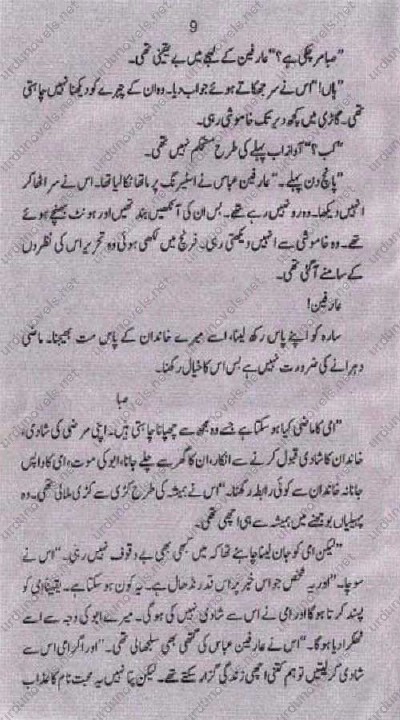 9
”صبا مر چکی ہے؟“ عارفین کے لہجے میں بے یقینی تھی۔
”ہاں!“ اس نے سر جھکاتے ہوئے جواب دیا۔ وہ ان کے چہرے کو دیکھنا نہیں چاہتی
تھی۔ گاڑی میں کچھ دیر تک خاموشی رہی۔
”کب؟“ آواز اب پہلے کی طرح مستحکم نہیں تھی۔
”پانچ دن پہلے۔“ عارفین عباس نے اسٹیرنگ پر ماتھا ٹکا لیا تھا۔ اس نے سر اٹھا کر
انہیں دیکھا۔ وہ رو نہیں رہے تھے۔ بس ان کی آنکھیں بند تھیں اور ہونٹ بھینچے ہوئے
تھے۔ وہ خاموشی سے انہیں دیکھتی رہی۔ فرنچ میں لکھی ہوئی وہ تحریر اس کی نظروں
کے سامنے آ گئی تھی۔
عارفین!
سارہ کو اپنے پاس رکھ لینا، اسے میرے خاندان کے پاس مت بھیجنا۔ ماضی
دہرانے کی ضرورت نہیں ہے بس اس کا خیال رکھنا۔
صبا
”امی کا ماضی کیا ہو سکتا ہے جسے وہ مجھ سے چھپانا چاہتی ہیں۔ اپنی مرضی کی شادی،
خاندان کا شادی قبول کرنے سے انکار، ان کا گھر سے چلے جانا، ابو کی موت، امی کا واپس
جانا نہ خاندان سے کوئی رابطہ رکھنا۔“ اس نے ہمیشہ کی طرح کڑی سے کڑی ملائی تھی۔ وہ
پہیلیاں بوجھنے میں ہمیشہ سے ہی اچھی تھی۔
”لیکن امی کو جان لینا چاہئے تھا کہ میں کبھی بھی بے وقوف نہیں رہی۔“ اس نے
سوچا۔ ”اور یہ شخص جو اس خبر پر اس قدر نڈھال ہے۔ یہ کون ہو سکتا ہے۔ یقیناً امی کو
پسند کرتا ہوگا اور امی نے اس سے شادی نہیں کی ہوگی۔ میرے ابو کی وجہ سے اسے
ٹھکرا دیا ہوگا۔“ اس نے عارفین عباس کی گتھی بھی سلجھالی تھی۔ ”اور اگر امی اس سے
شادی کر لیتیں تو ہم کتنی اچھی زندگی گزار سکتے تھے۔ لیکن پتا نہیں یہ محبت نام کا عذاب
urdunovels.net